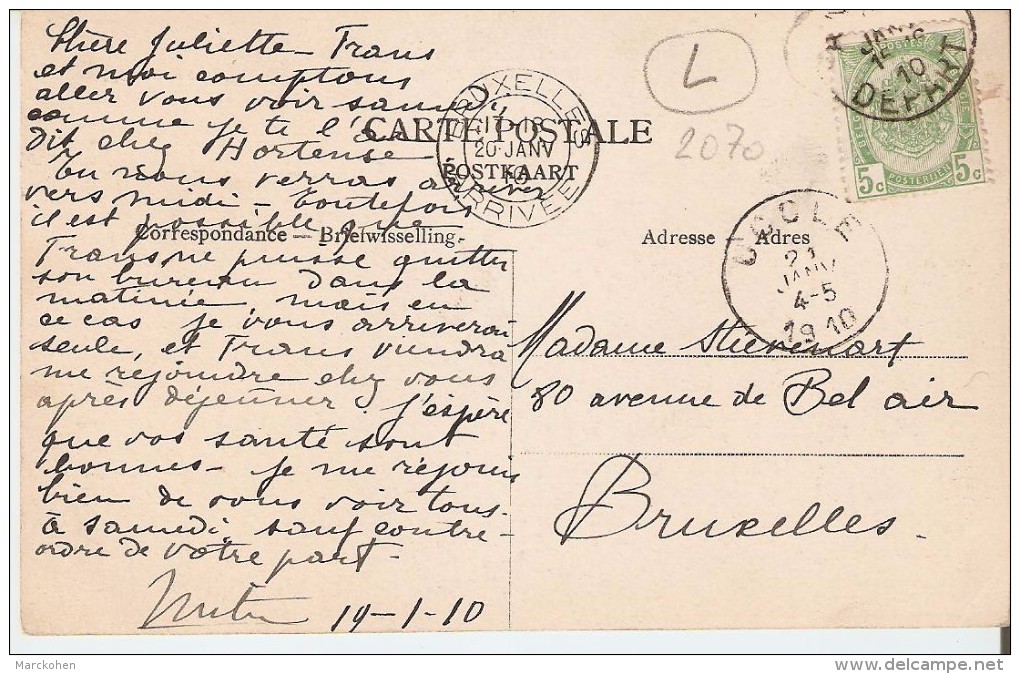 Chère Juliette - Frans
et moi comptons
aller vous voir samedi,
comme je te l'ai
dit chez Hortense.
Tu nous verras arriver
vers midi - toutefois
il est possible que
Frans ne puisse quitter
son bureau dans la
matinée, mais en
ce cas je vous arriverai
seule, et Frans viendra
me rejoindre chez vous
après déjeuner. J'espère
que vos santé sont
bonnes - je me réjouis
bien de vous voir tous.
à samedi, sauf contre-
ordre de votre part -
19-1-10
CARTE POSTALE
POSTKAART
Correspondance — Briefwisseling.
Adresse — Adres
L
2070
BRUXELLES
17-18
20 JANV
10
ARRIVÉE
UCCLE
21
JANV
4-5
1910
JANV
10
DEPART
POSTES
5c POSTERIJEN 5c
Madame Stiévenart
80 avenue de Bel air
Bruxelles.
Marckohen
delcampe.net